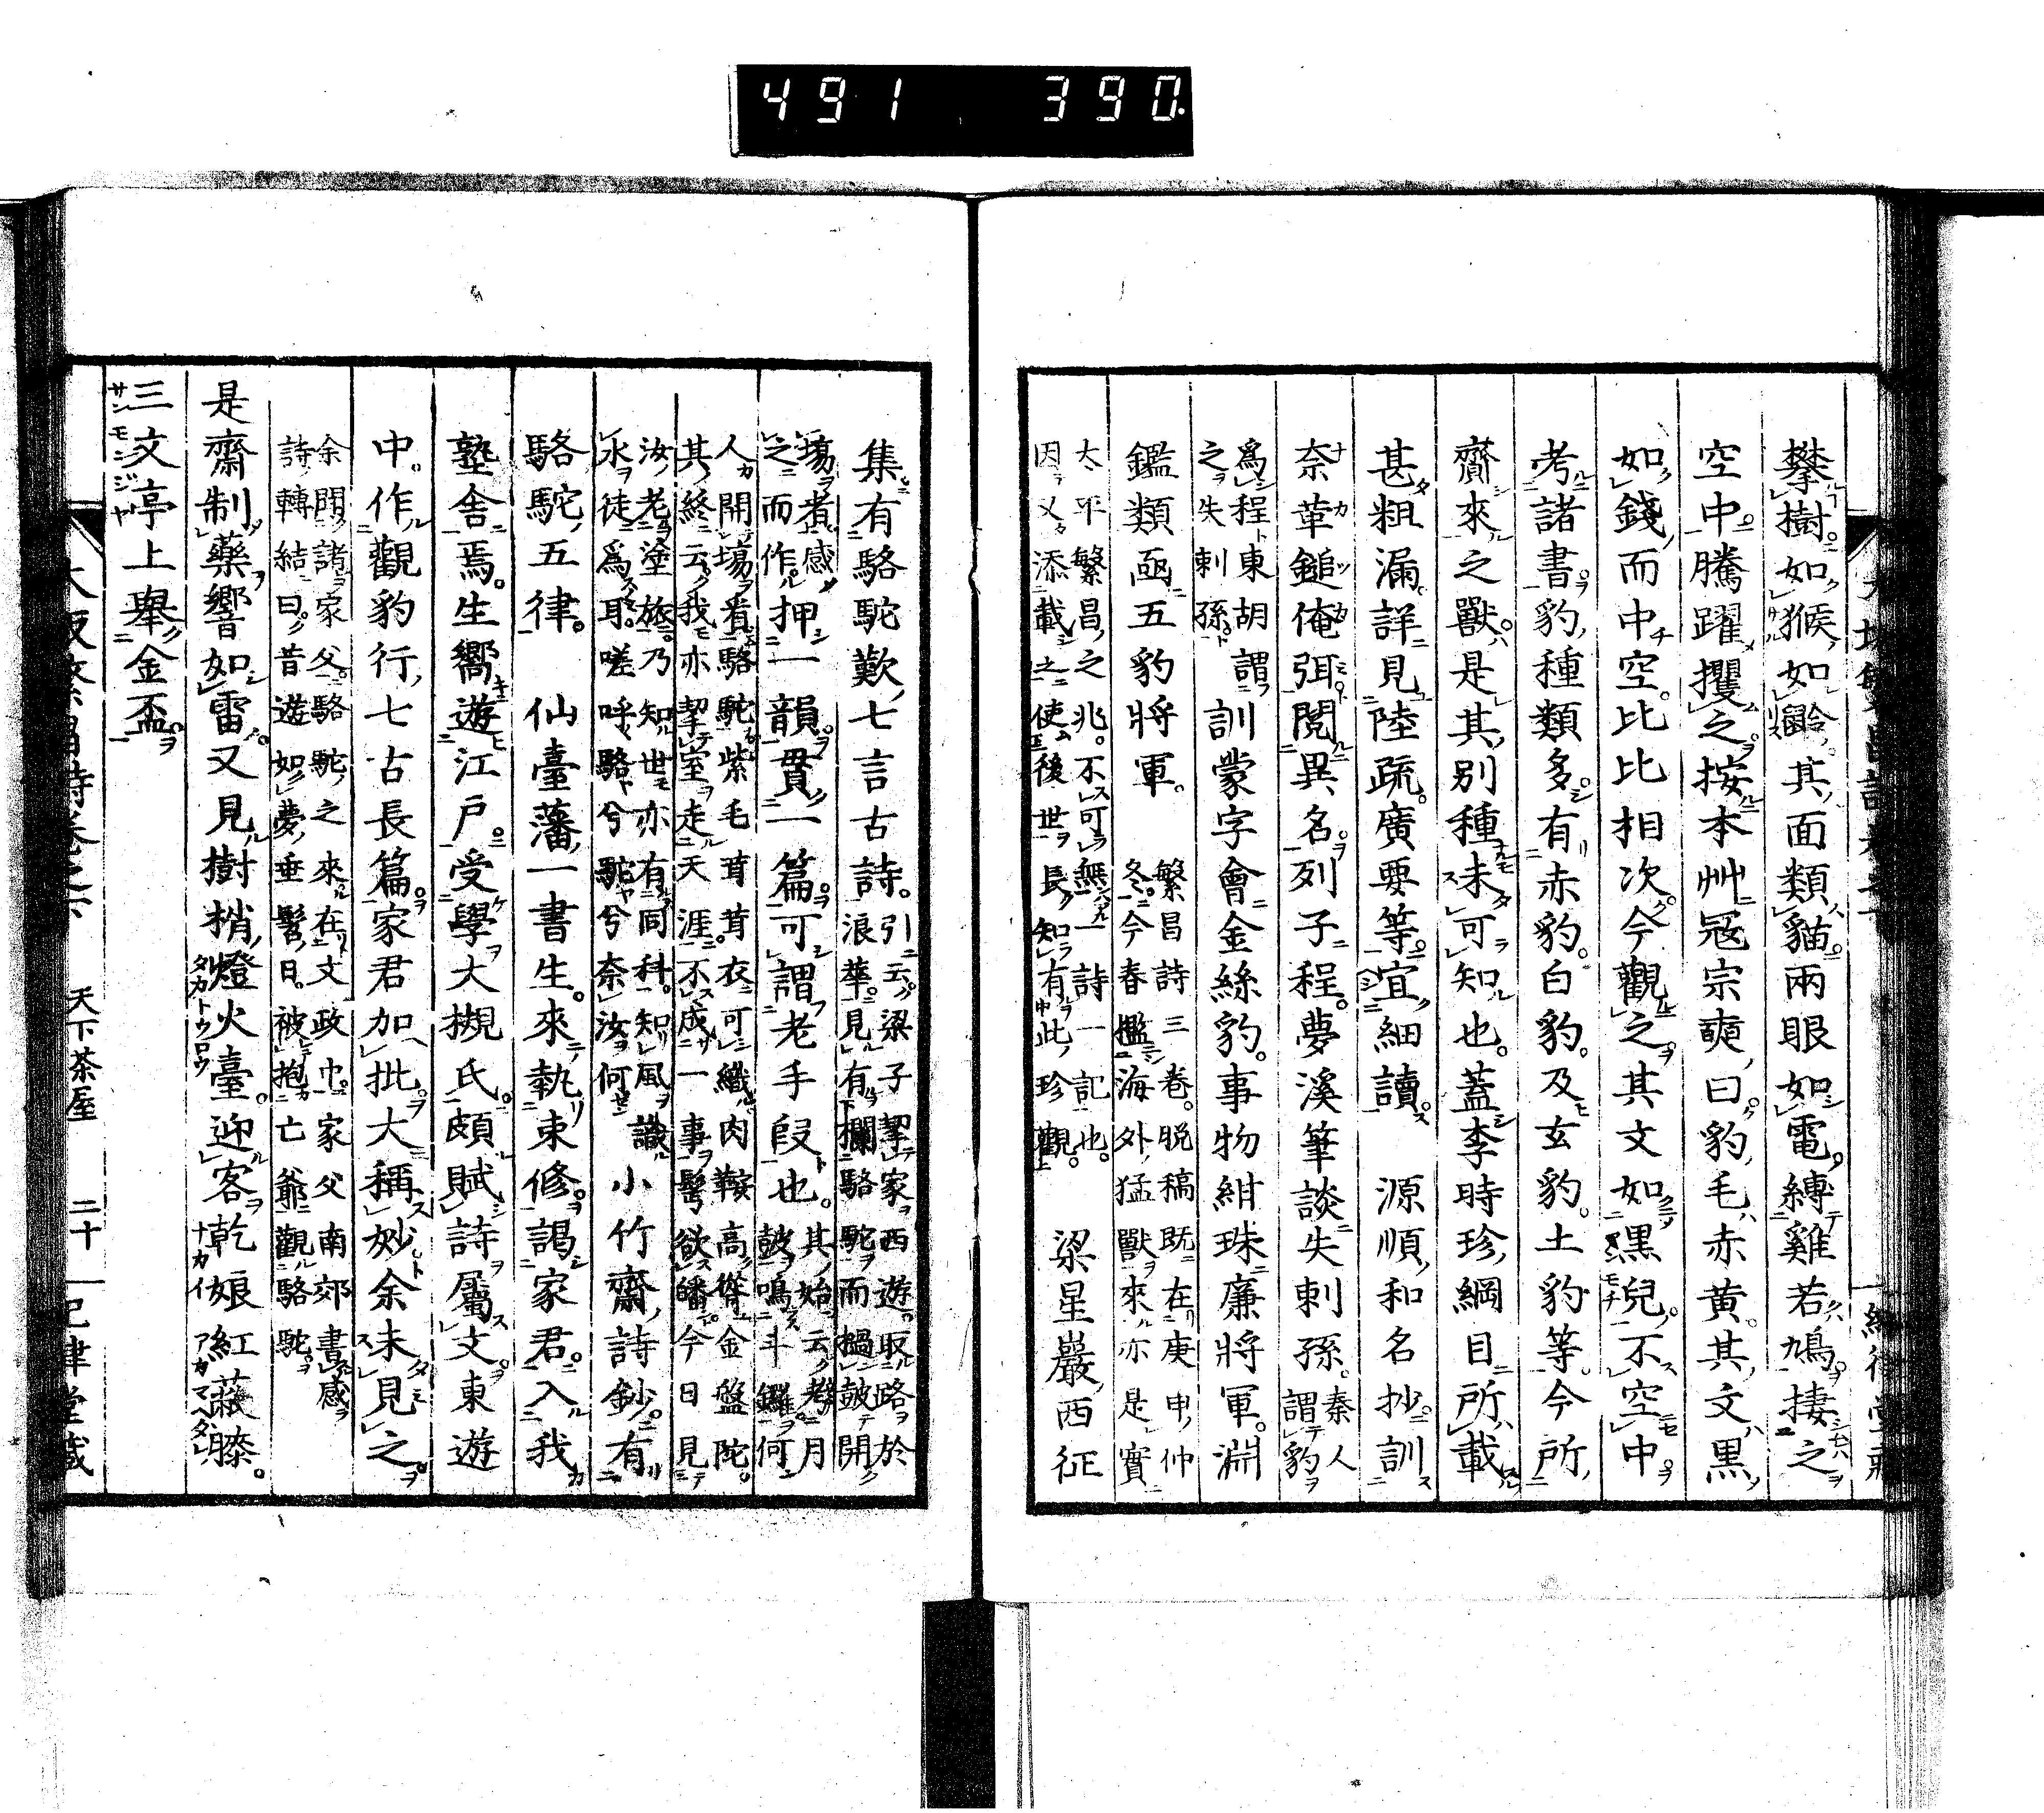 491 390
攀樹。如猴如鼯。其面類貓。兩眼如電。縛雞若鳩。捿之
空中。騰躍攫之。按本艸冦宗奭曰。豹毛赤黄。其文黒
如錢。而中空。比比相次。今觀之。其文如黒兒。不空中。
考諸書。豹種類多。有赤豹。白豹。及玄豹。土豹等。今所
齎來之獸。是其別種未可知也。蓋李時珍綱目所載
甚粗漏。詳見陸疏。廣要等。宜細讀。 源順和名抄。訓
奈革鎚俺弭。閲異名。列子程。夢溪筆談失刺孫。秦人謂豹
爲程東胡謂之失刺孫。 訓蒙字會金絲豹。事物紺珠廉將軍。淵
鑑類凾五豹將軍。 繁昌詩三卷。脱稿既在庚申仲冬。今春檻海外猛獸來亦是實
太平繁昌之兆。不可無一詩一記也。因又添載之使後世長知有此珍觀。 梁星巖西征
集有駱駝歎七言古詩。引云。梁子挈家西遊。取路於浪華。見有欄駱駝而撾鼓開
場者。感之而作。押一韻貫一篇。可謂老手段也。其始云。弩月鼓鳴斗鑼何
人開場看駱駝。紫毛茸茸衣可織。肉鞍高聳金盤陀。其終云。我亦挈室走天涯。不成一事髩欲皤。今日見
汝老塗旅。乃知世亦有同科。知風識水徒爲耳。嗟呼駱兮駝兮奈汝何。 小竹齋詩鈔。有
駱駝五律。 仙臺藩一書生。來執束修。謁家君。入我
塾舎焉。生嚮遊江戸。受學大槻氏。頗賦詩屬文。東遊
中。作觀豹行七古長篇。家君加批。大稱妙。余未見之。
余閲諸家父。駱駝之來在文政巾。家父南郊書感詩轉結曰。昔遊如夢垂髫日。被抱亡爺觀駱駝。
是齋制藥響如雷。又見樹梢燈火臺。迎客乾娘紅蔽膝。
タカトウロウ ナカイ アカマヘダレ
三文亭上舉金盃。
サンモンジヤ
天下茶屋 二十